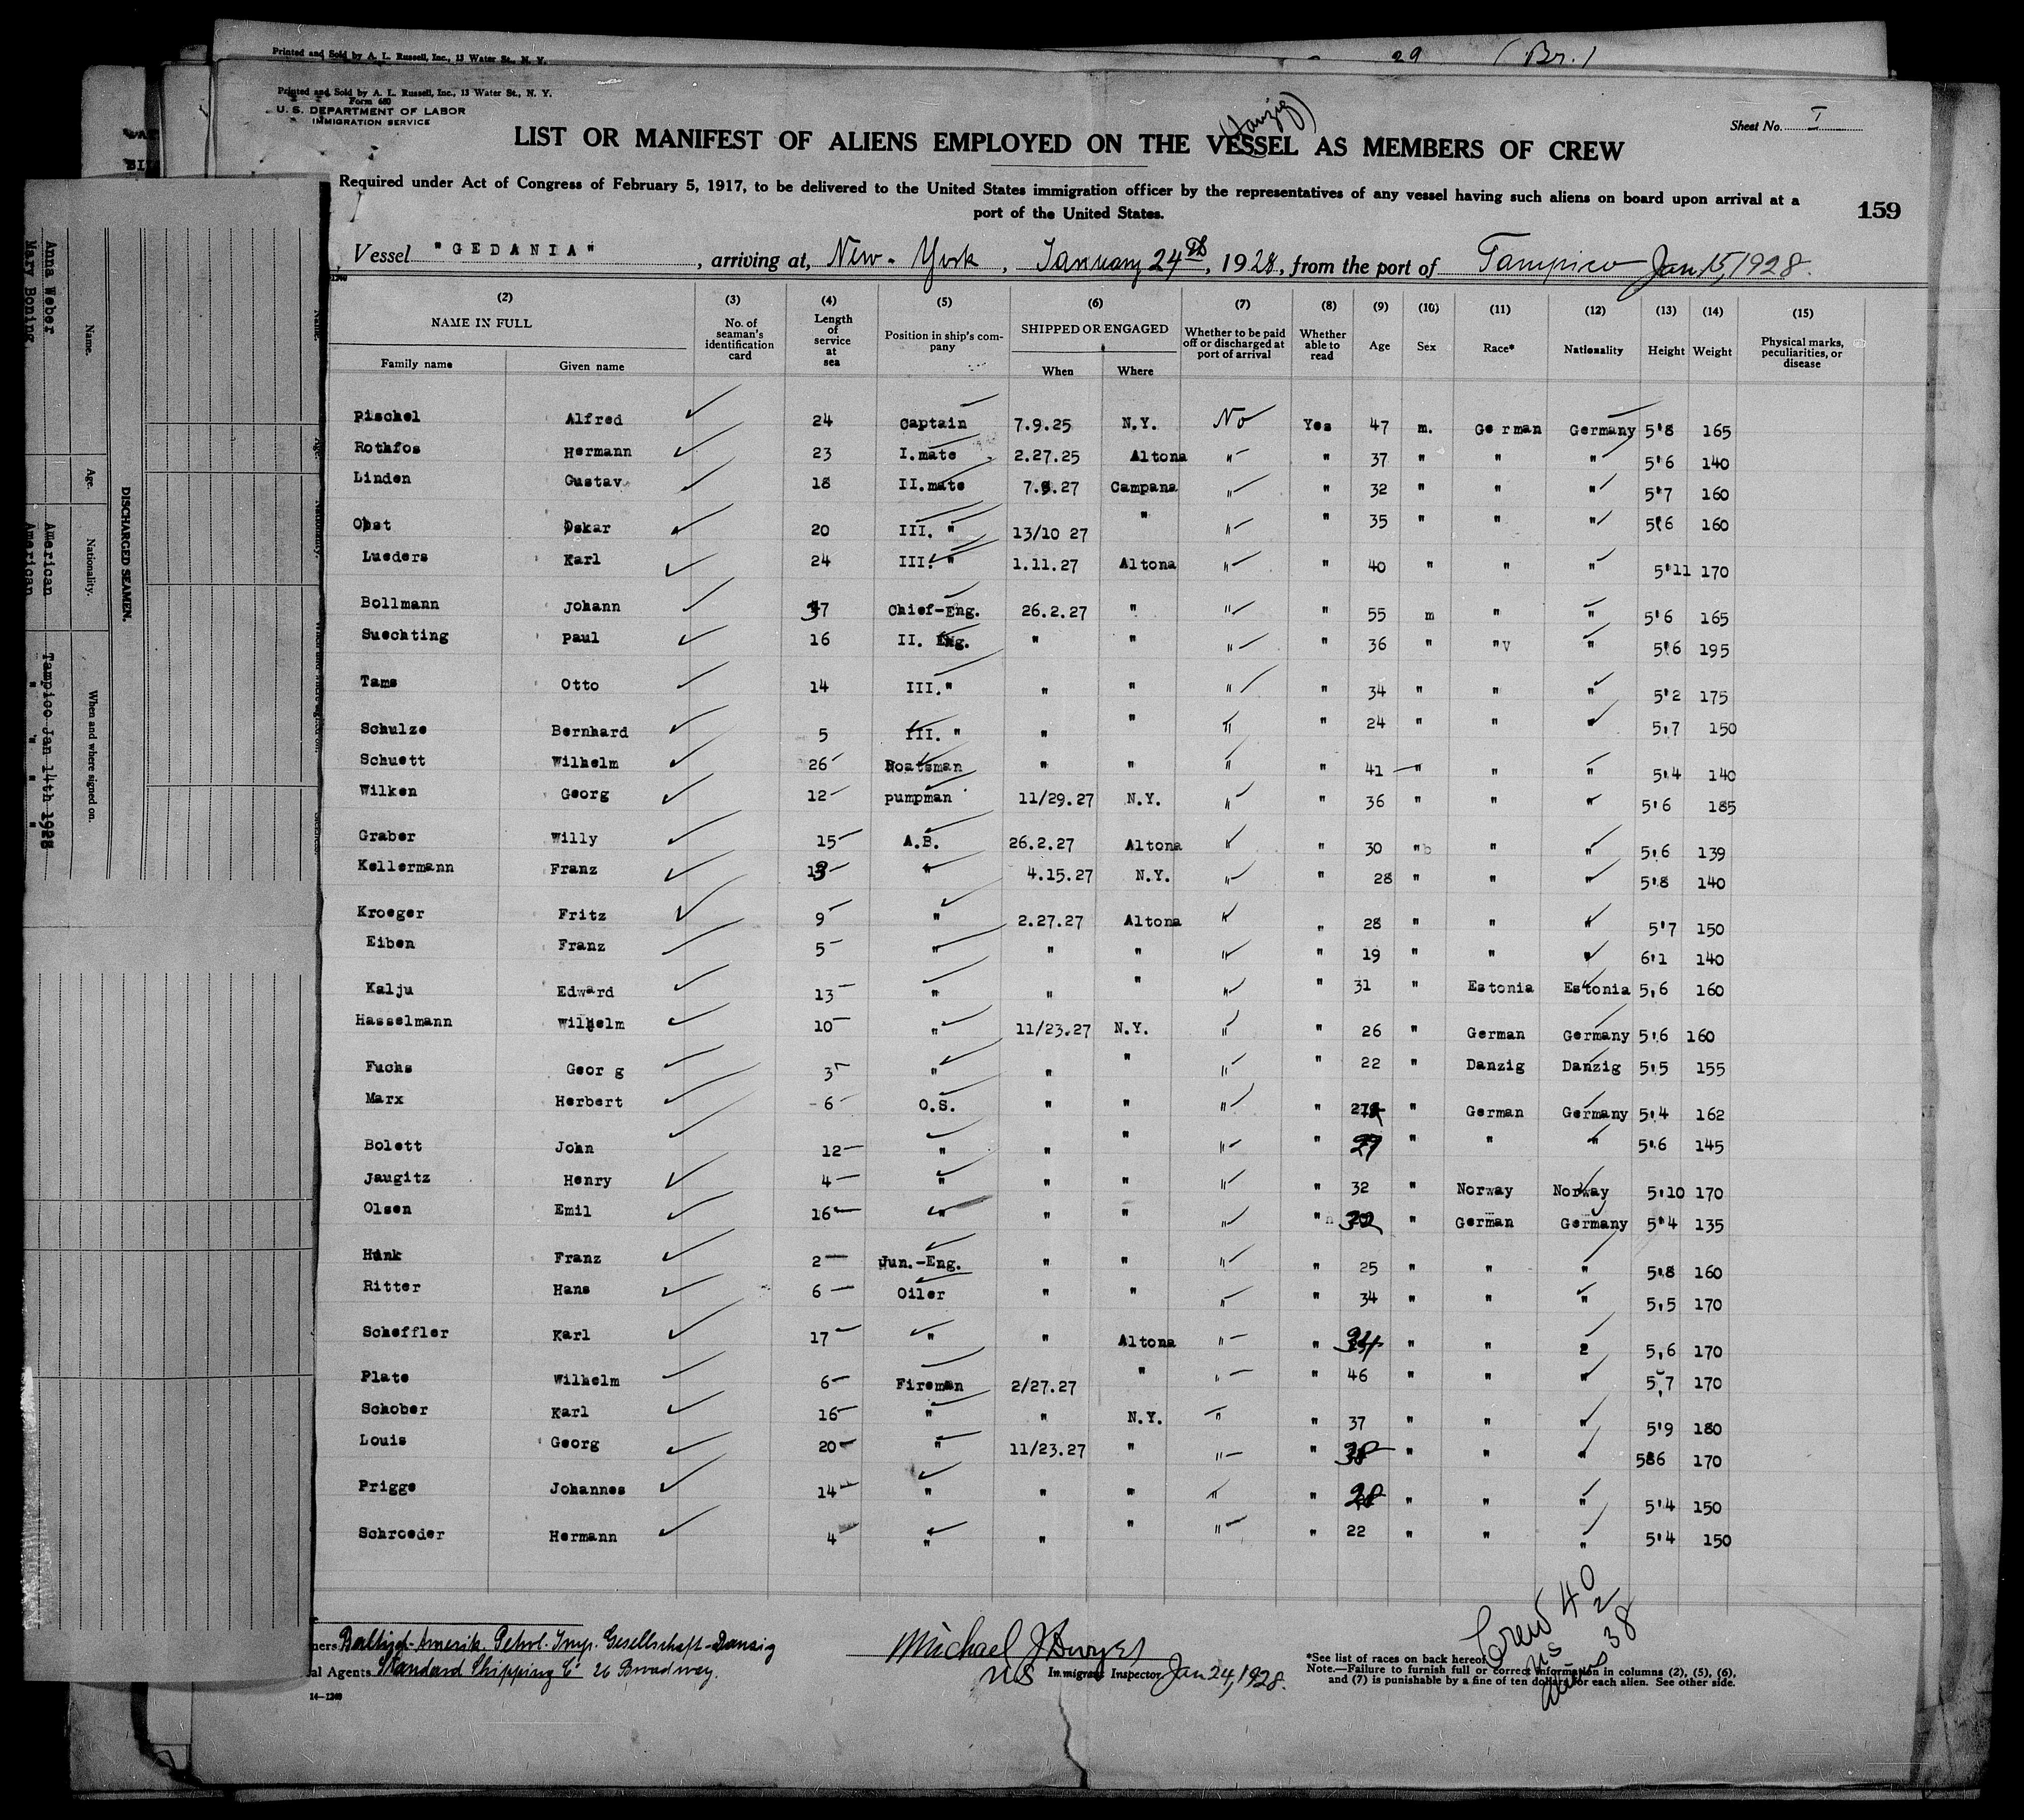 Printed and Sold by A. L. Russell, Inc., 13 Water St., N. Y.
29 (Br.)
Printed and Sold by A. L. Russell, Inc., 13 Water St., N. Y.
Form 680
U. S. DEPARTMENT OF LABOR
IMMIGRATION SERVICE
(Danzig)
Sheet No. I
LIST OR MANIFEST OF ALIENS EMPLOYED ON THE VESSEL AS MEMBERS OF CREW
Required under Act of Congress of February 5, 1917, to be delivered to the United States immigration officer by the representatives of any vessel having such aliens on board upon arrival at a
port of the United States.
159
Vessel "GEDANIA", arriving at, New-York, January 24th, 1928, from the port of Tampico Jan 15, 1928.
(2) (3) (4) (5) (6) (7) (8) (9) (10) (11) (12) (13) (14) (15)
NAME IN FULL No. of seaman's identification card Length of service at sea Position in ship's company SHIPPED OR ENGAGED Whether to be paid off or discharged at port of arrival Whether able to read Age Sex Race* Nationality Height Weight Physical marks, peculiarities, or disease
Family name Given name When Where
Pischel Alfred 24 Captain 7.9.25 N.Y. No Yes 47 m. German Germany 5'8 165
Rothfos Hermann 23 I.mate 2.27.25 Altona " " 37 " " " 5'6 140
Linden Gustav 18 II.mate 7.9.27 Campana " " 32 " " " 5'7 160
Obst Oskar 20 III. " 13/10 27 " " " 35 " " " 5'6 160
Lueders Karl 24 III. " 1.11.27 Altona " " 40 " " " 5'11 170
Bollmann Johann 37 Chief-Eng. 26.2.27 " " " 55 m " " 5'6 165
Suechting Paul 16 II. Eng. " " " " 36 " " " 5'6 195
Tams Otto 14 III." " " " " 34 " " " 5'2 175
Schulze Bernhard 5 III. " " " " " 24 " " " 5.7 150
Schuett Wilhelm 26 Boatsman " " " " 41 " " " 5'4 140
Wilken Georg 12 pumpman 11/29.27 N.Y. " " 36 " " " 5'6 185
Graber Willy 15 A.B. 26.2.27 Altona " " 30 " " " 5'6 139
Kellermann Franz 13 " 4.15.27 N.Y. " " 28 " " " 5'8 140
Kroeger Fritz 9 " 2.27.27 Altona " " 28 " " " 5'7 150
Eiben Franz 5 " " " " " 19 " " " 6'1 140
Kalju Edward 13 " " " " " 31 " Estonia Estonia 5,6 160
Hasselmann Wilhelm 10 " 11/23.27 N.Y. " " 26 " German Germany 5'6 160
Fuchs Geor g 3 " " " " " 22 " Danzig Danzig 5'5 155
Marx Herbert 6 O.S. " " " " " German Germany 5'4 162
Bolett John 12 " " " " " 29 " " " 5'6 145
Jaugitz Henry 4 " " " " " 32 " Norway Norway 5'10 170
Olsen Emil 16 " " " " " " German Germany 5'4 135
Hink Franz 2 Jun.-Eng. " " " " 25 " " " 5'8 160
Ritter Hans 6 Oiler " " " " 34 " " " 5.5 170
Scheffler Karl 17 " " Altona " " 34 " " 2 5,6 170
Plate Wilhelm 6 Fireman 2/27.27 " " " 46 " " " 5,7 170
Schober Karl 16 " " N.Y. " " 37 " " " 5'9 180
Louis Georg 20 " 11/23.27 " " " 38 " " " 586 170
Prigge Johannes 14 " " " " " 28 " " " 5'4 150
Schroeder Hermann 4 " " " " " 22 " " " 5'4 150
Crew 40
US 2
Aliens 38
ners Baltisch-Amerik. Petrol. Imp. Gesellschaft-Danzig
al Agents Standard Shipping Co 26 Broadway.
14—1240
Michael J Dwyer
US Immigrant Inspector Jan 24, 1928.
*See list of races on back hereof.
Note.—Failure to furnish full or correct information in columns (2), (5), (6),
and (7) is punishable by a fine of ten dollars for each alien. See other side.
DISCHARGED SEAMEN.
Name. Age. Nationality. When and where signed on.
Anna Weber American Tampico Jan 14th 1928
Mary Boning American " " " "